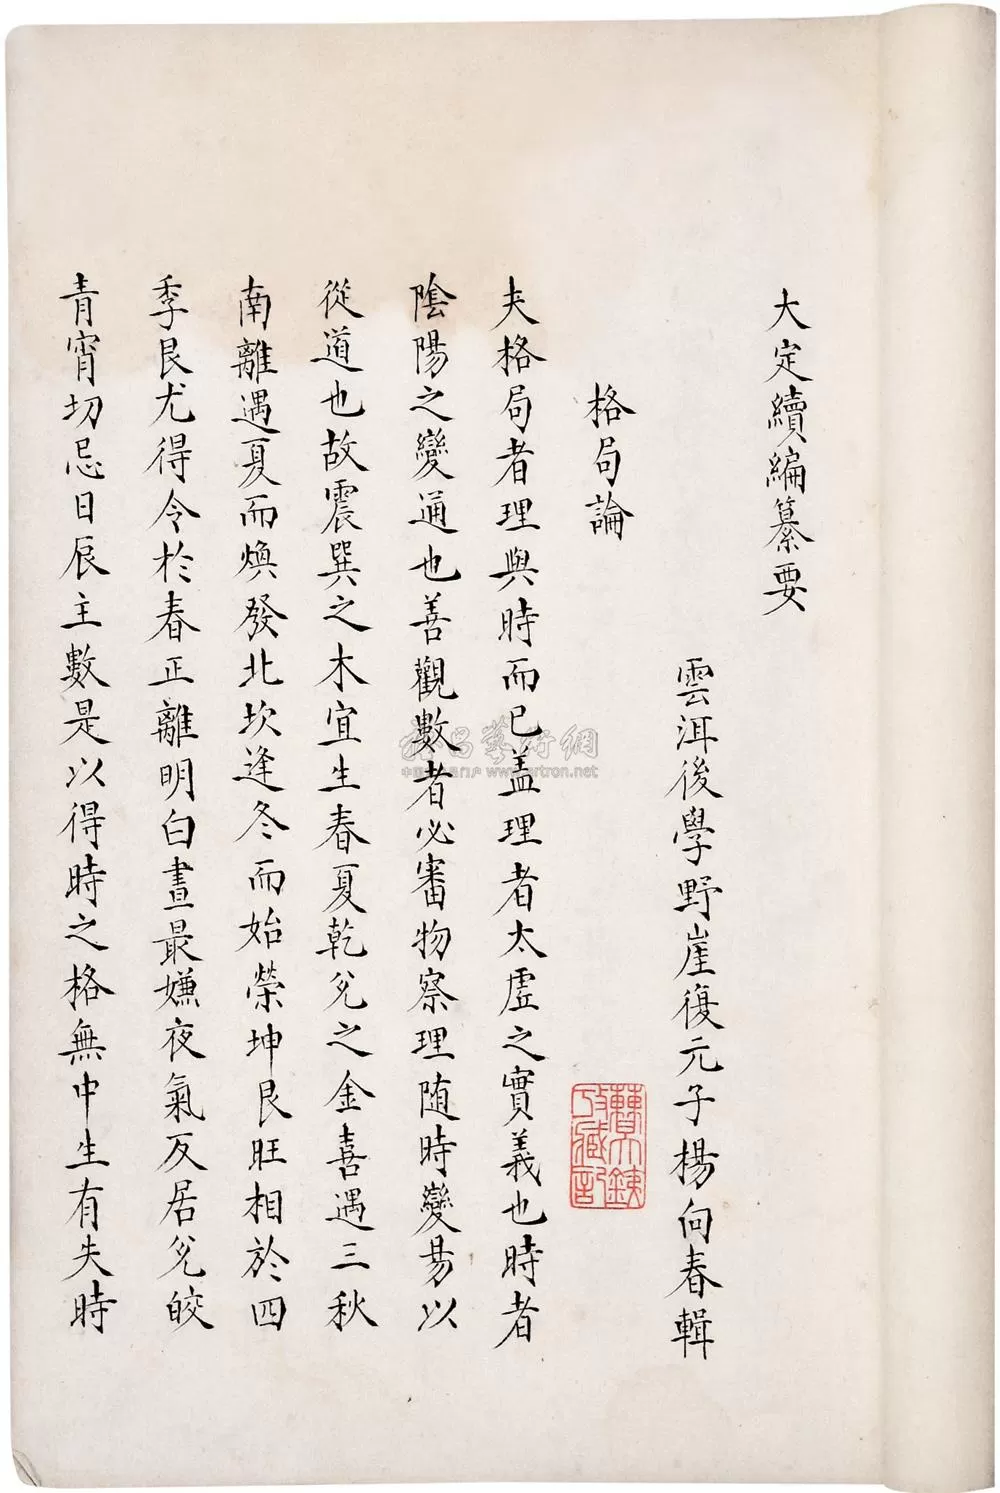 大定續編纂要
雲洱後學野崖復元子楊向春輯
格局論
夫格局者理與時而已盖理者太虛之實義也時者
陰陽之變通也善觀數者必審物察理随時變易以
從道也故震巽之木宜生春夏乾兌之金喜遇三秋
南離遇夏而煥發北坎逢冬而始榮坤艮旺相於四
季艮尤得令於春正離明白晝最嫌夜氣反居兌皎
青宵切忌日辰主數是以得時之格無中生有失時
雅昌藝術網
artron.net